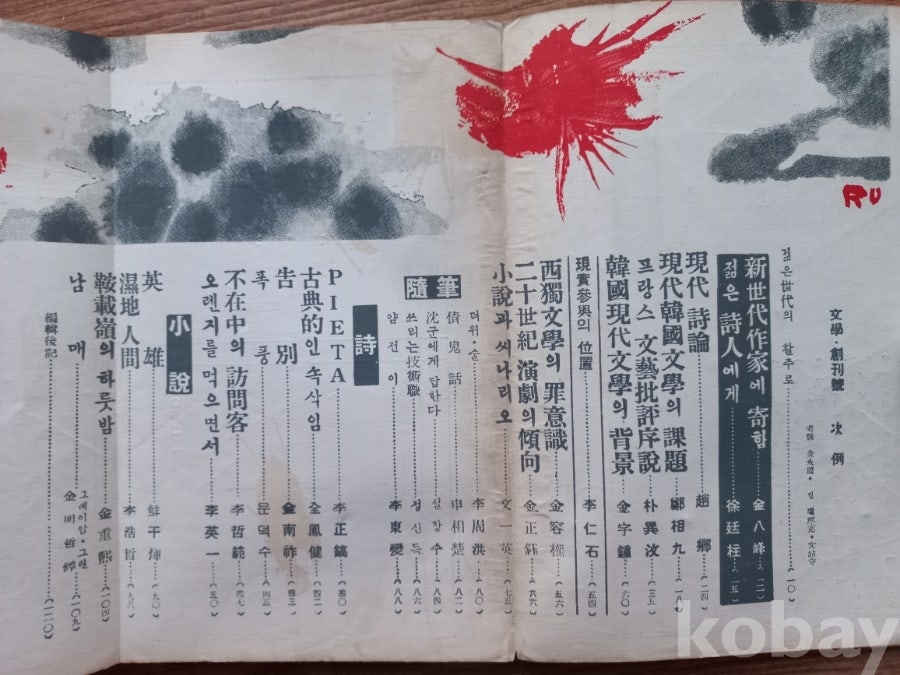 RU
文學·創刊號 次例
젊은世代의 활주로 (一〇)
新世代作家에 寄함 金八峰 (一二)
젊은 詩人에게 徐廷柱 (一五)
現代詩論 趙鄕 (二四)
現代韓國文學의 課題 鄭相九 (一八)
프랑스 文藝批評序說 朴異汶 (三五)
韓國現代文學의 背景 金宇鐘 (六〇)
現實參與의 位置 李仁石 (五四)
西獨文學의 罪意識 金容權 (五六)
二十世紀 演劇의 傾向 金正鈺 (六六)
小說과 씨나리오 文一英 (七五)
隨筆
더위·술 李周洪 (八〇)
債鬼話 申相楚 (八二)
沈군에게 답한다 설창수 (八四)
쓰리는 技術職 정신득 (八六)
얌전이 李東燮 (八八)
詩
PIETA 李正鎬 (四〇)
古典的인 속삭임 全鳳健 (四二)
告別 金南祚 (四三)
폭풍 문덕수 (四五)
不在中의 訪問客 李哲範 (四七)
오렌지를 먹으면서 李英一 (五〇)
小說
英雄 鮮于煇 (九〇)
濕地人間 李浩哲
鞍載嶺의 하룻밤 金重熙 (一〇四)
남매 그레이암·그린 (一〇九)
編輯後記 (一二〇)
kobay